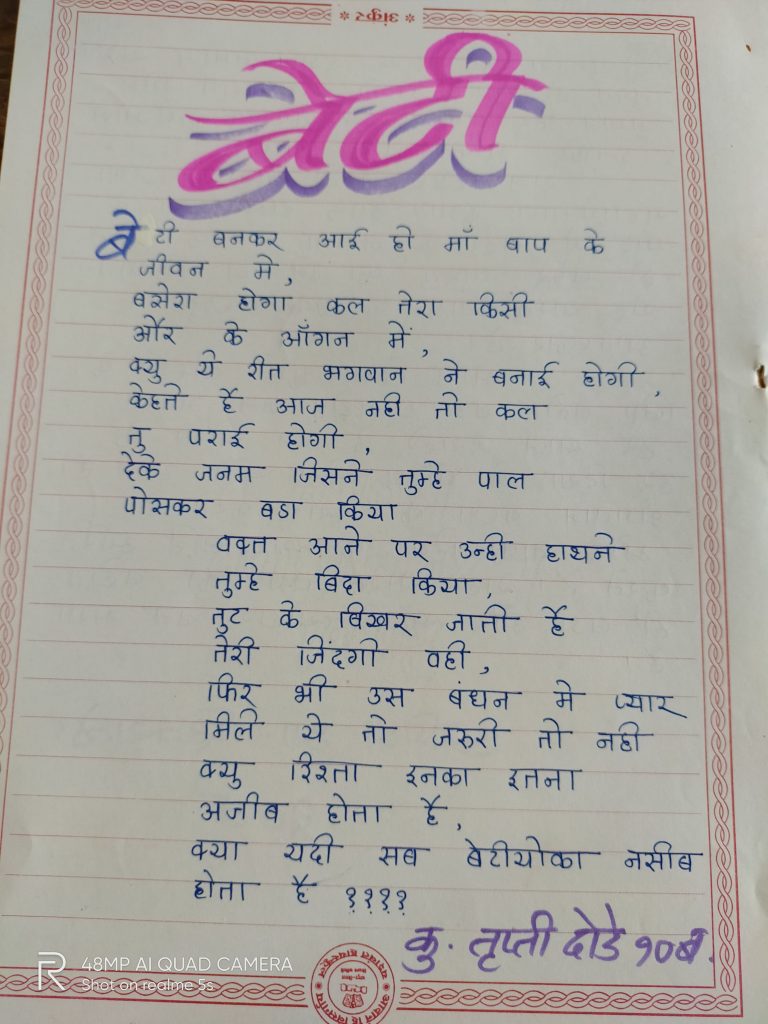 अंकुर
बेटी
बेटी बनकर आई हो माँ बाप के
जीवन मे,
बसेरा होगा कल तेरा किसी
और के आँगन में,
क्यु ये रीत भगवान ने बनाई होगी,
केहते है आज नही तो कल
तु पराई होगी,
देके जनम जिसने तुम्हे पाल
पोसकर बडा किया
वक्त आने पर उन्ही हाथने
तुम्हे बिदा किया,
तुट के बिखर जाती है
तेरी जिंदगी वही,
फिर भी उस बंधन मे प्यार
मिले ये तो जरुरी तो नही
क्यु रिश्ता इनका इतना
अजीब होता है,
क्या यदी सब बेटीयोका नसीब
होता है ????
कु. तृप्ती दोडे १०ब.
48MP AI QUAD CAMERA
Shot on realme 5s